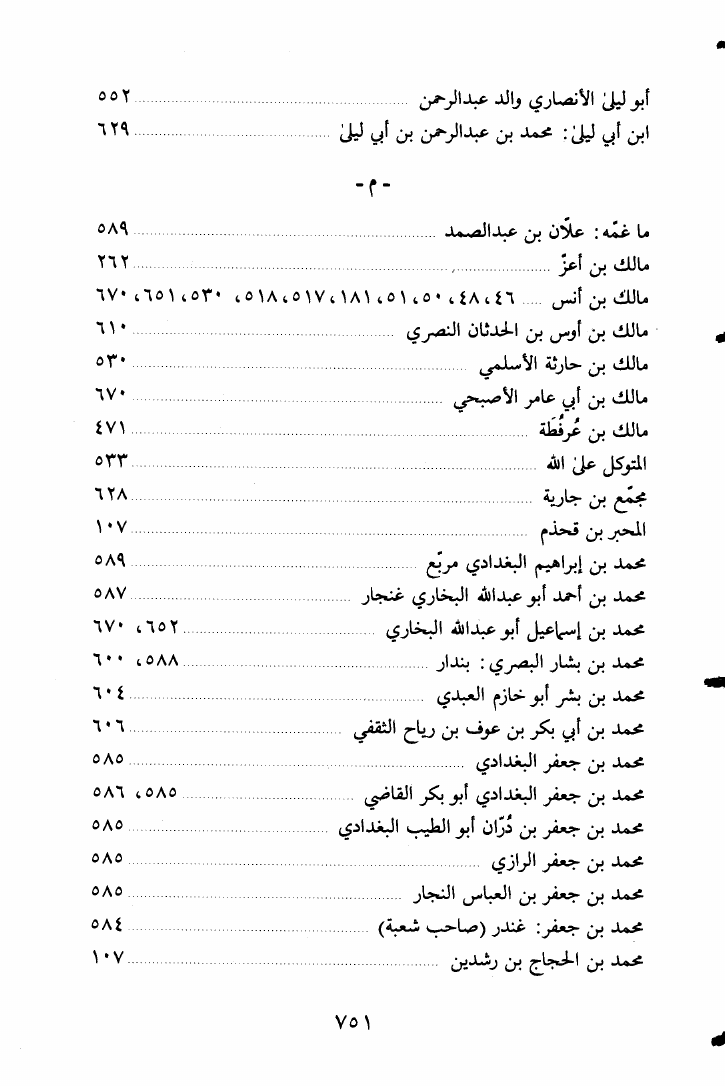 أبو ليلىٰ الأنصاري والد عبدالرحمن ........ ٥٥٢
ابن أبي ليلىٰ: محمد بن عبدالرحمن بن أبي ليلىٰ ........ ٦٢٩
- م -
ما غمّه: علّان بن عبدالصمد ........ ٥٨٩
مالك بن أعزّ ........ ٢٦٢
مالك بن أنس ..... ٤٦، ٤٨، ٥٠، ٥١، ١٨١، ٥١٧، ٥١٨، ٥٣٠، ٦٥١، ٦٧٠
مالك بن أوس بن الحدثان النصري ........ ٦١٠
مالك بن حارثة الأسلمي ........ ٥٣٠
مالك بن أبي عامر الأصبحي ........ ٦٧٠
مالك بن عُرفُطَة ........ ٤٧١
المتوكل علىٰ الله ........ ٥٣٣
مجمّع بن جارية ........ ٦٢٨
المحبر بن قحذم ........ ١٠٧
محمد بن إبراهيم البغدادي مربّع ........ ٥٨٩
محمد بن أحمد أبو عبدالله البخاري غنجار ........ ٥٨٧
محمد بن إسماعيل أبو عبدالله البخاري ........ ٦٥٢، ٦٧٠
محمد بن بشار البصري: بندار ........ ٥٨٨، ٦٠٠
محمد بن بشر أبو خازم العبدي ........ ٦٠٤
محمد بن أبي بكر بن عوف بن رياح الثقفي ........ ٦٠٦
محمد بن جعفر البغدادي ........ ٥٨٥
محمد بن جعفر البغدادي أبو بكر القاضي ........ ٥٨٥، ٥٨٦
محمد بن جعفر بن دُرّان أبو الطيب البغدادي ........ ٥٨٥
محمد بن جعفر الرازي ........ ٥٨٥
محمد بن جعفر بن العباس النجار ........ ٥٨٥
محمد بن جعفر: غندر (صاحب شعبة) ........ ٥٨٤
محمد بن الحجاج بن رشدين ........ ١٠٧
٧٥١